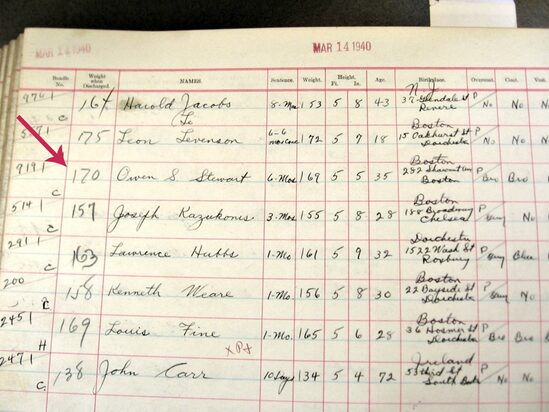 MAR 14 1940 MAR 14 1940
Bundle No. Weight when Discharged. NAMES. Sentence. Weight. Height. Ft. In. Age. Birthplace. Overcoat. Coat. Vest.
N.J.
9761 C 164 Harold Jacobs 8-Mos 153 5 8 43 Revere P No No No
Le Boston
175 Leon Levenson 172 5 7 18 15 Oakhurst St Dorchester P No No
Boston
9191 C 170 Owen S Stewart 6-Mos 169 5 5 35 282 Shawmut Ave Boston P Bro Bro
Boston
5141 C 157 Joseph Kazukonis 3-Mos 155 5 8 28 188 Broadway Chelsea P No No
Dorchester
2911 C 163 Lawrence Hubbs 1-Mo. 161 5 9 32 1522 Wash St Roxbury P Blue
Boston
200 C 158 Kenneth Weare 1-Mo. 156 5 8 30 22 Bayside St Dorchester P No
Boston
2451 H 169 Louis Fine 1-Mo. 165 5 6 28 36 Hosmer St Dorchester P Bro Bro
XPX Ireland
2471 C. 138 John Carr 10 Days 134 5 4 72 53 third St South Bost P No No